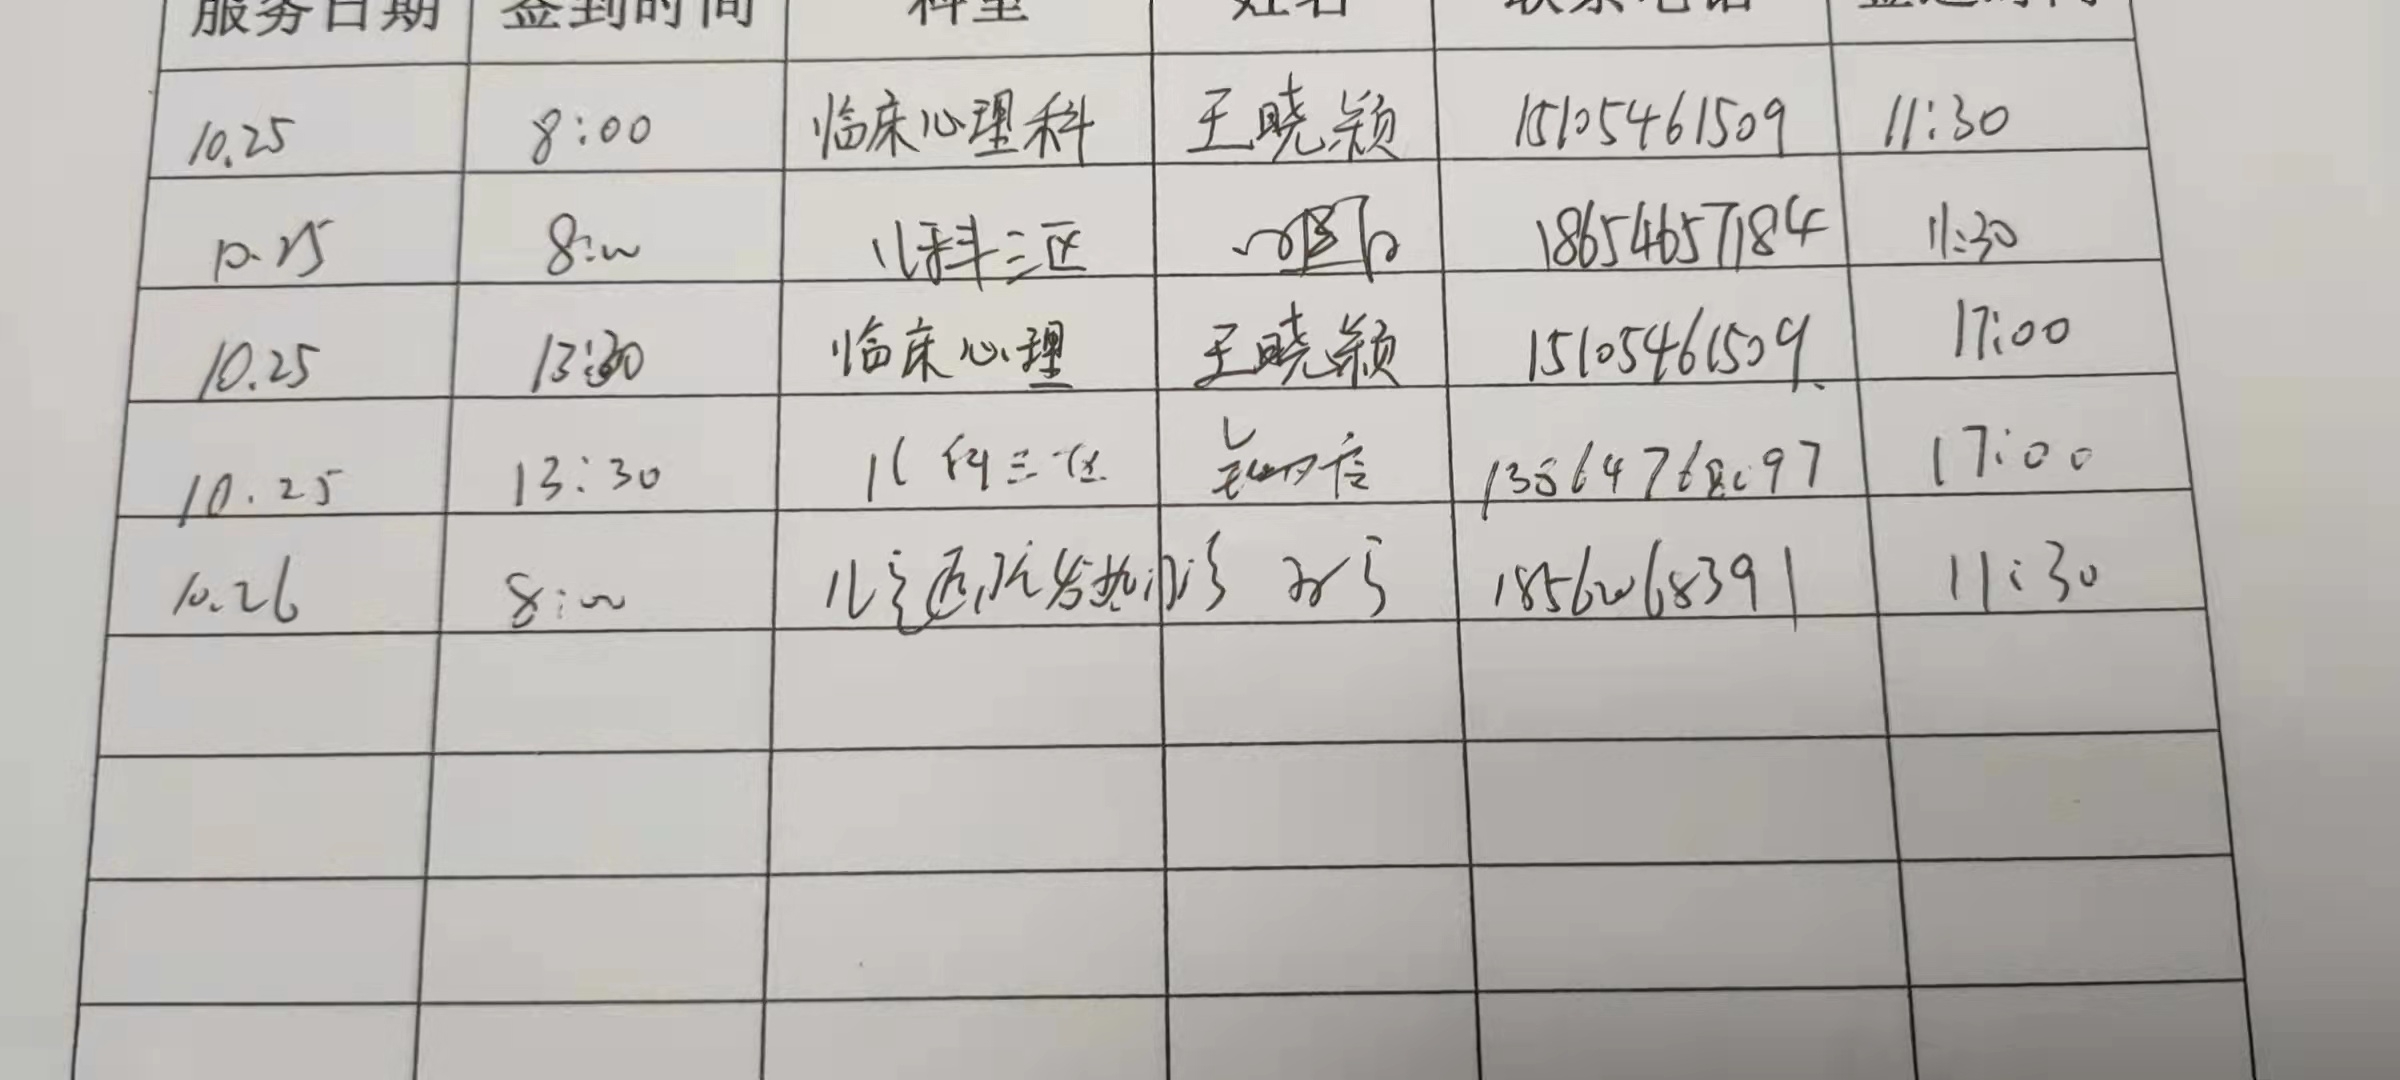 服务日期 签到时间 科室 姓名 联系电话 签退时间
10.25 8:00 临床心理科 王晓颖 15105461509 11:30
10.25 8:00 儿科三区 18654657184 11:30
10.25 13:30 临床心理 王晓颖 15105461509 17:00
10.25 13:30 儿科三区 17:00
10.26 8:00 11:30